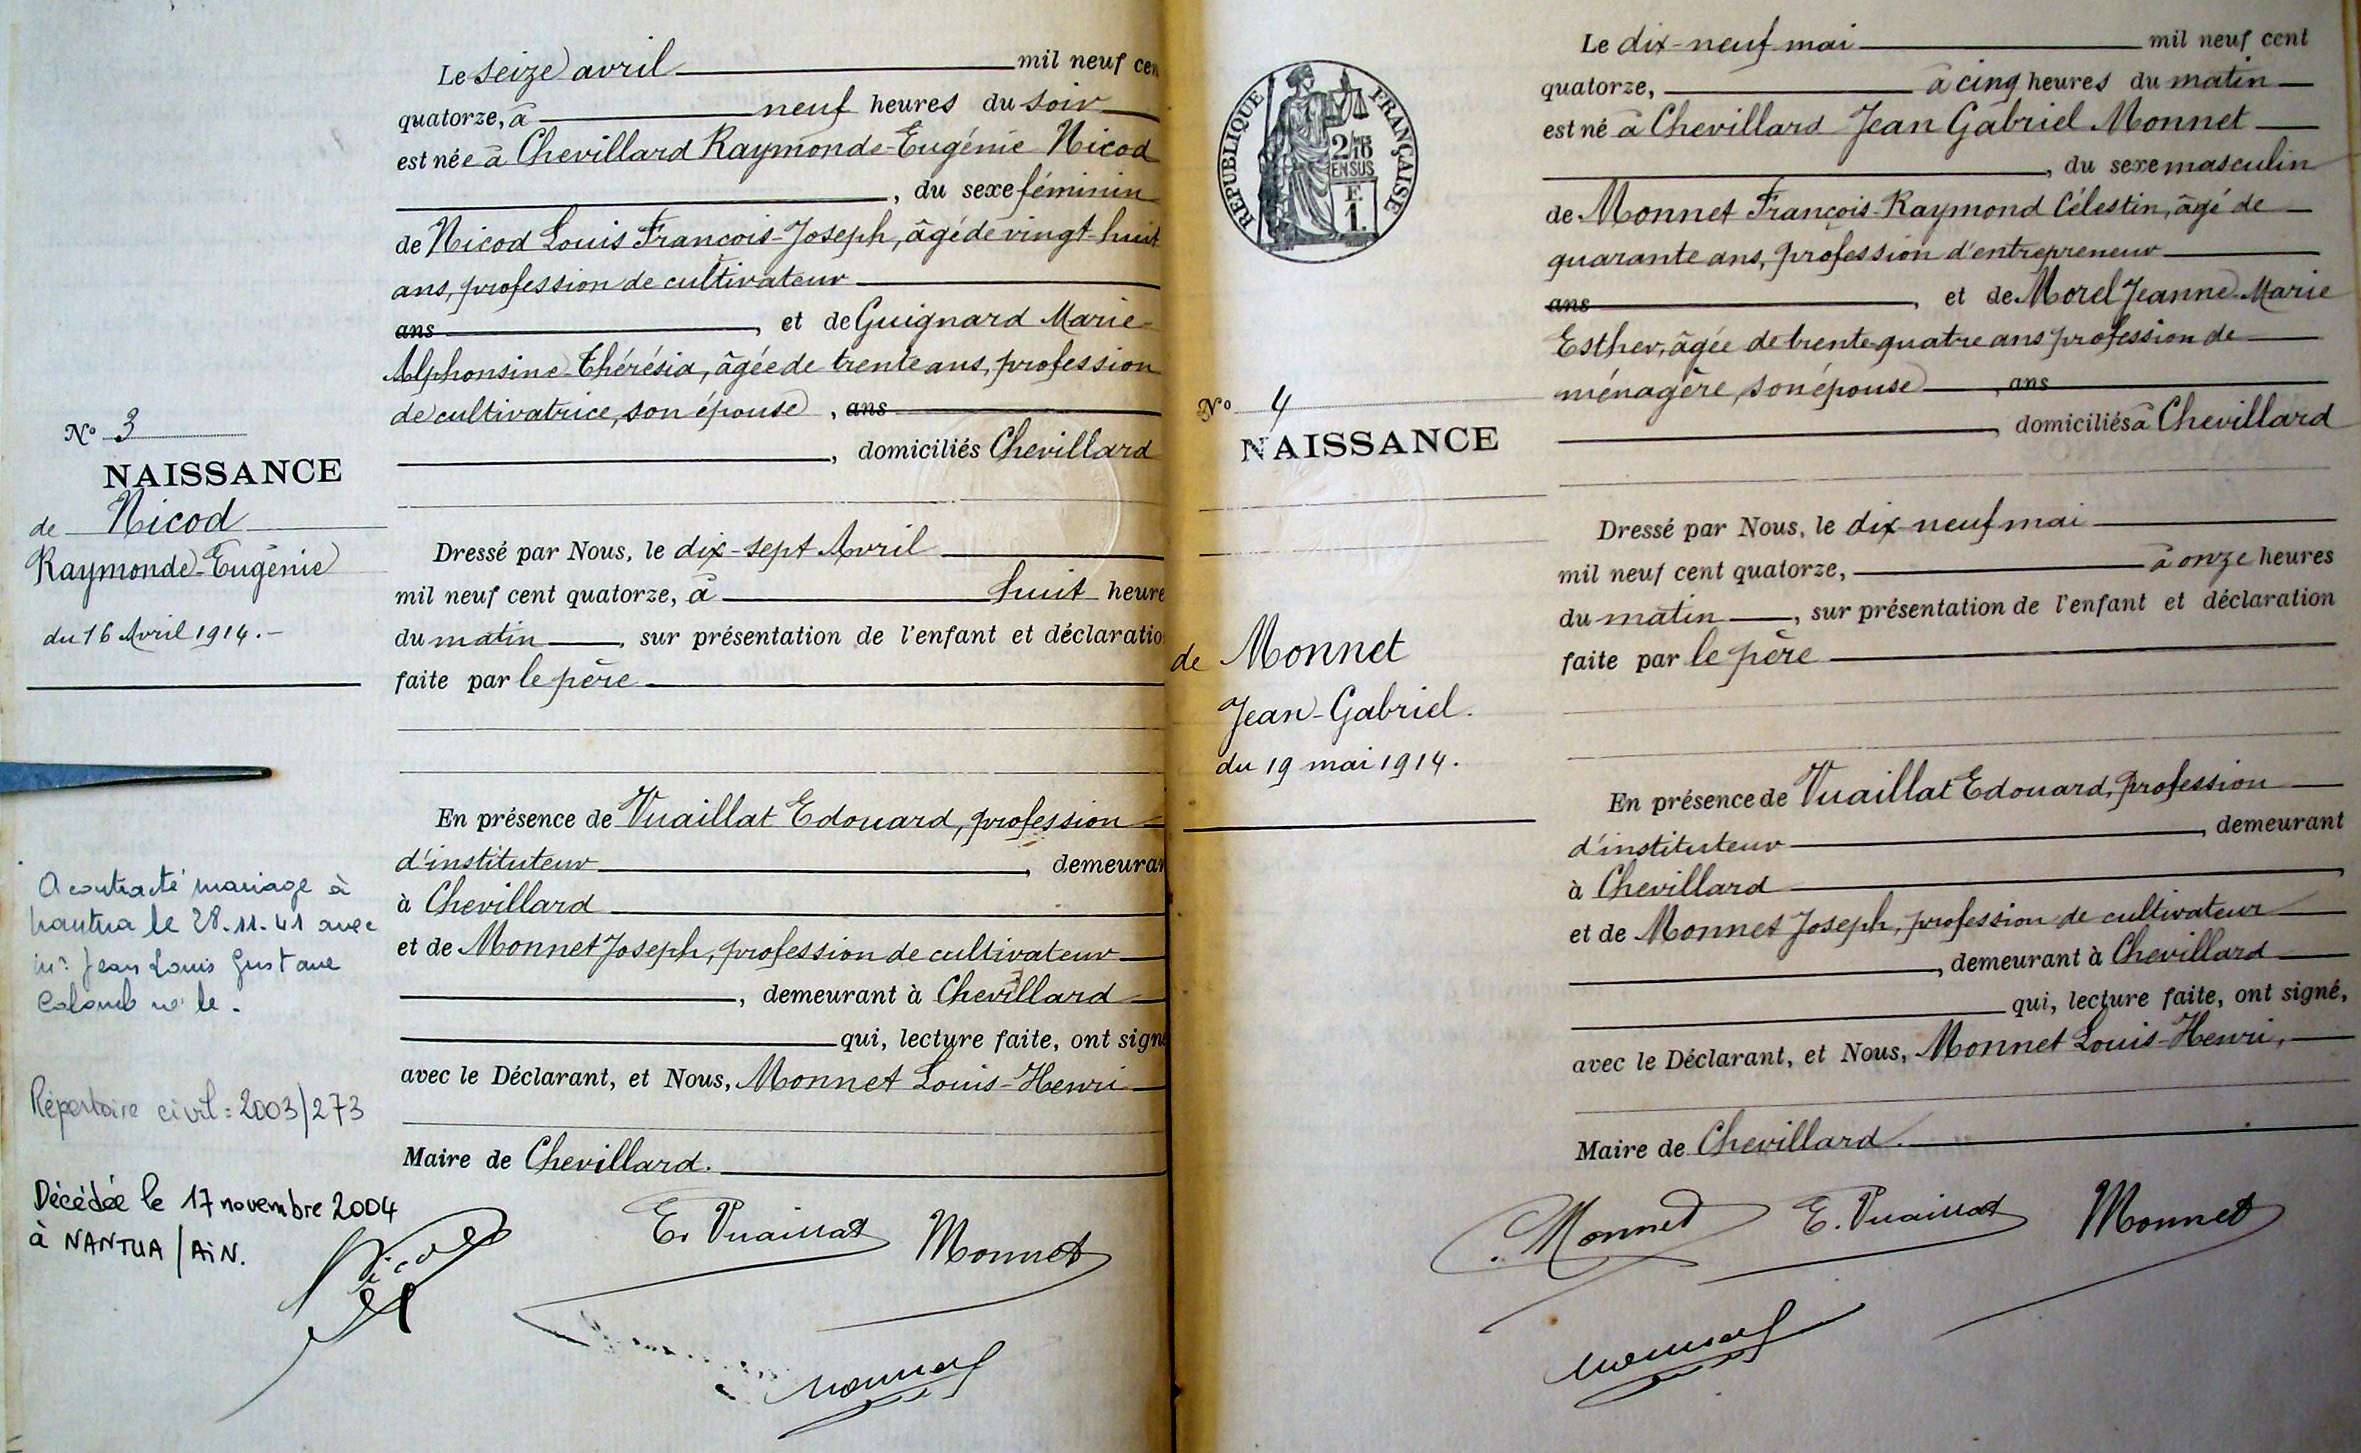 Le seize avril mil neuf cen
quatorze, à neuf heures du soir
est née à Chevillard Raymonde-Eugénie Nicod
, du sexe féminin
de Nicod Louis François-Joseph, âgé de vingt-huit
ans, profession de cultivateur
ans , et de Guignard Marie-
Alphonsine-Thérésia, âgée de trente ans, profession
de cultivatrice, son épouse , ans
, domiciliés Chevillard
N° 3
NAISSANCE
de Nicod
Raymonde-Eugénie
du 16 Avril 1914.-
Dressé par Nous, le dix-sept Avril
mil neuf cent quatorze, à huit heure
du matin , sur présentation de l'enfant et déclaratio
faite par le père
En présence de Vuaillat Edouard, profession
d'instituteur , demeuran
à Chevillard
et de Monnet Joseph, profession de cultivateur
, demeurant à Chevillard
qui, lecture faite, ont signé
avec le Déclarant, et Nous, Monnet Louis-Henri
Maire de Chevillard.
A contracté mariage à
Nantua le 28.11.41 avec
Mr. Jean Louis Gustave
Colomb né le .
Répertoire civil : 2003/273
Décédée le 17 novembre 2004
à NANTUA / AiN.
Nicod
E. Vuaillat Monnet
Monnet
Le dix-neuf mai mil neuf cent
quatorze, à cinq heures du matin
est né à Chevillard Jean Gabriel Monnet
, du sexe masculin
de Monnet François-Raymond Célestin, âgé de
quarante ans, profession d'entrepreneur
ans , et de Morel Jeanne-Marie
Esther, âgée de trente-quatre ans profession de
ménagère, son épouse , ans
, domiciliés à Chevillard
RÉPUBLIQUE FRANÇAISE
2/10
EN SUS
F.
1.
N° 4
NAISSANCE
de Monnet
Jean-Gabriel.
du 19 mai 1914.
Dressé par Nous, le dix-neuf mai
mil neuf cent quatorze, à onze heures
du matin , sur présentation de l'enfant et déclaration
faite par le père
En présence de Vuaillat Edouard, profession
d'instituteur , demeurant
à Chevillard
et de Monnet Joseph, profession de cultivateur
, demeurant à Chevillard
qui, lecture faite, ont signé,
avec le Déclarant, et Nous, Monnet Louis-Henri,
Maire de Chevillard.
Monnet E. Vuaillat Monnet
Monnet